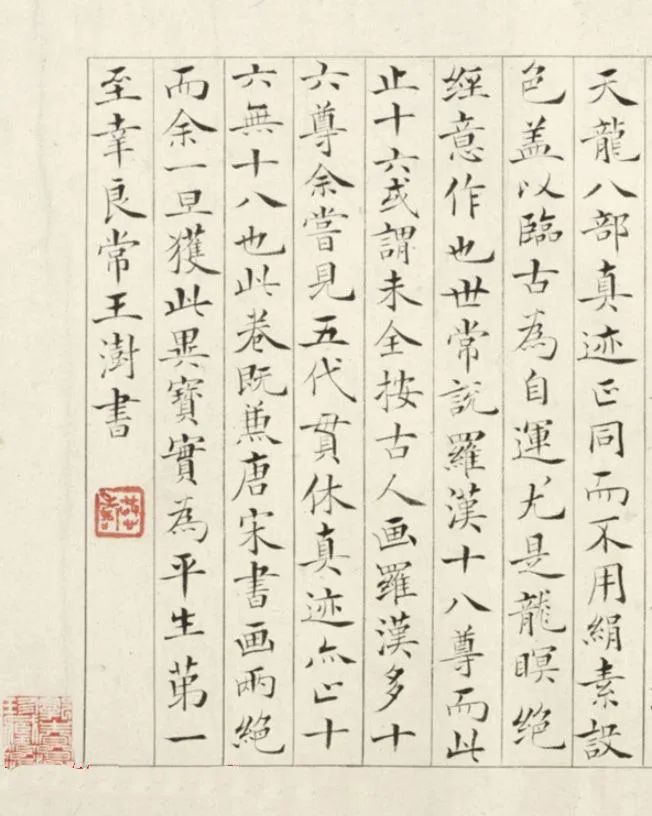 天龍八部真迹正同而不用絹素設
色盖以臨古為自運尤是龍瞑绝
經意作也世常說羅漢十八尊而此
止十六或謂未全按古人画羅漢多十
六尊余嘗見五代貫休真迹亦止十
六無十八也此卷既蕉唐宋書画兩絕
而余一旦獲此異寶實為平生苐一
至幸良常王澍書